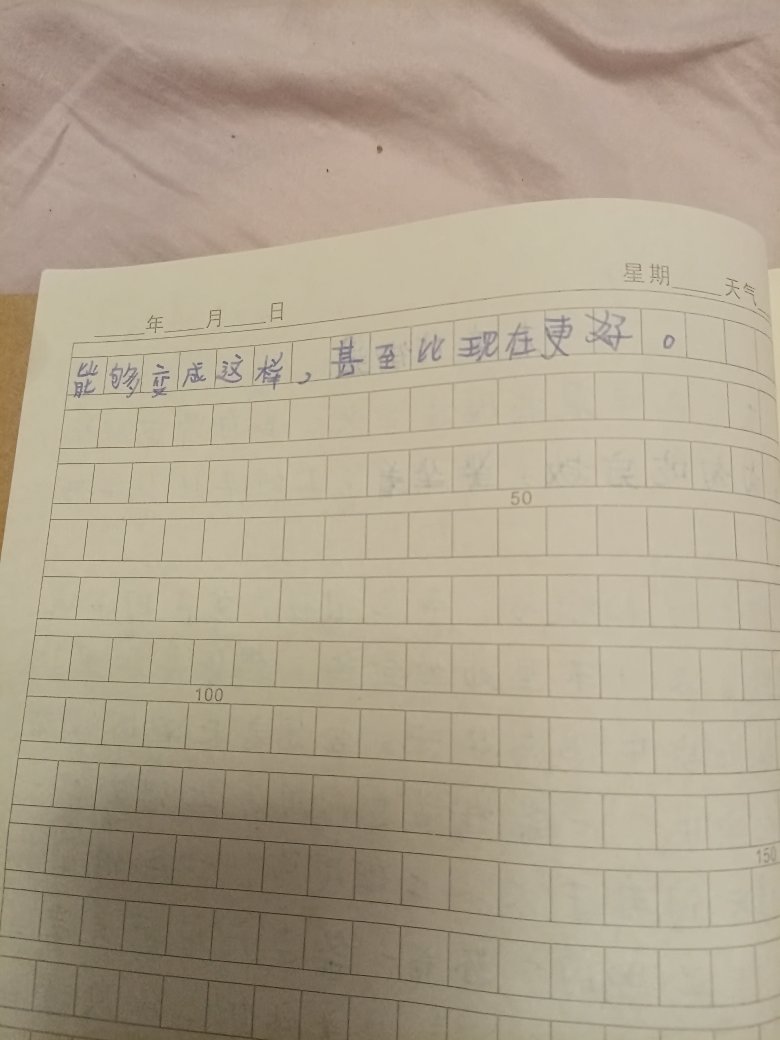 星期____天气__
____年___月___日
能够变成这样，甚至比现在更好。
50
100
150